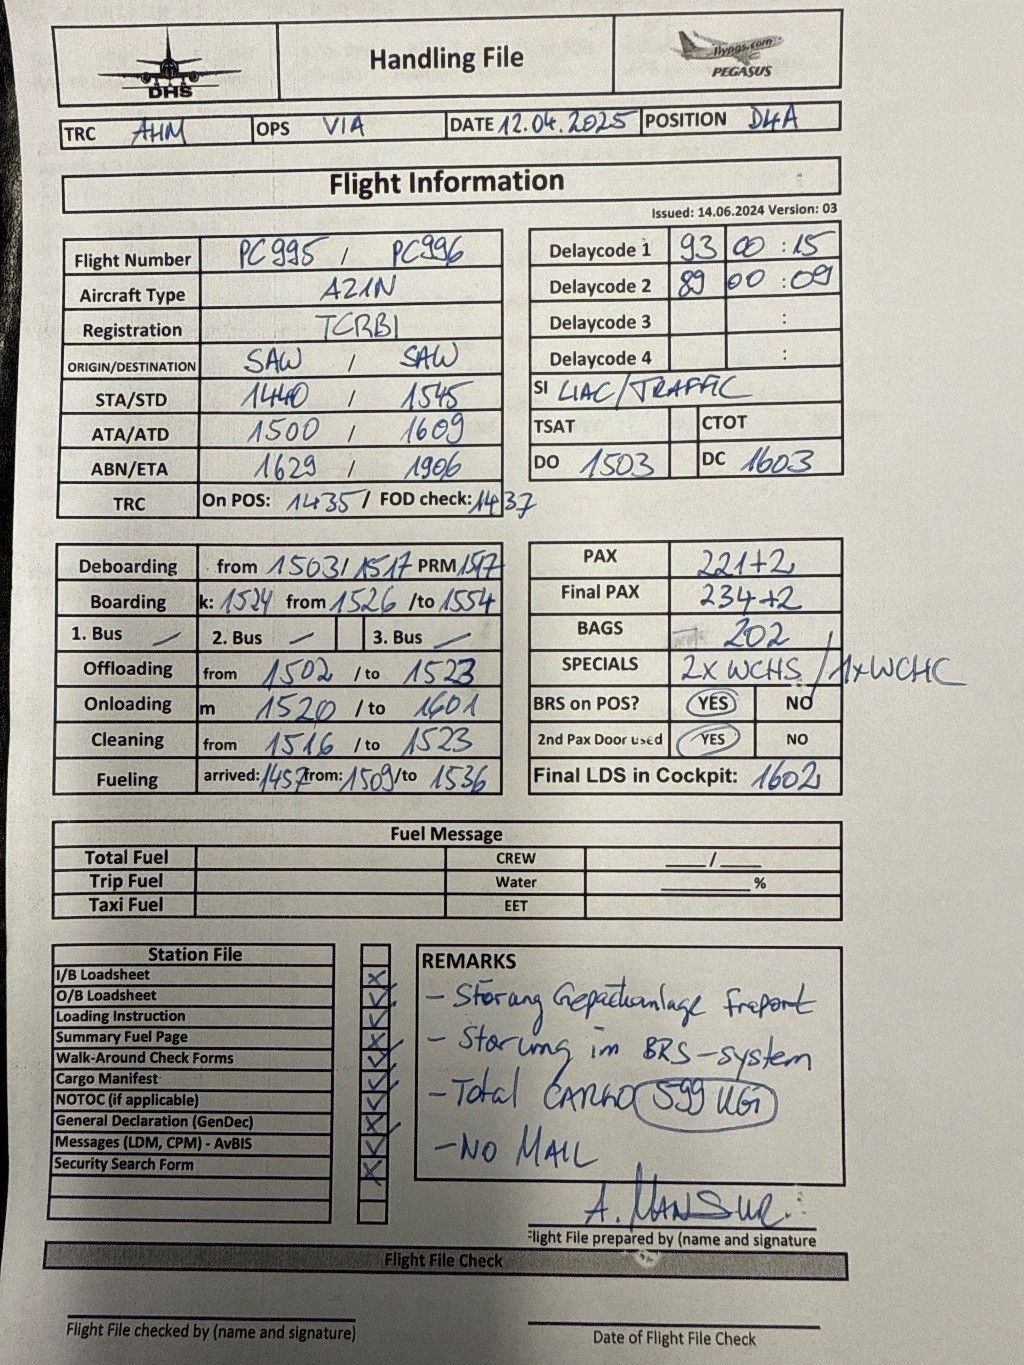 DHS
Handling File
flypgs.com
PEGASUS
TRC AHM OPS VIA DATE 12.04.2025 POSITION D4A
Flight Information
Issued: 14.06.2024 Version: 03
Flight Number PC995 / PC996
Aircraft Type A21N
Registration TCRBI
ORIGIN/DESTINATION SAW / SAW
STA/STD 1440 / 1545
ATA/ATD 1500 / 1609
ABN/ETA 1629 / 1906
TRC On POS: 1435 / FOD check: 1437
Delaycode 1 93 00 : 15
Delaycode 2 89 00 : 09
Delaycode 3 :
Delaycode 4 :
SI LIAC/TRAFFIC
TSAT CTOT
DO 1503 DC 1603
Deboarding from 1503/ 1517 PRM 1517
Boarding k: 1524 from 1526 /to 1554
1. Bus – 2. Bus – 3. Bus –
Offloading from 1502 /to 1523
Onloading m 1520 /to 1601
Cleaning from 1516 /to 1523
Fueling arrived: 1457 from: 1509 /to 1536
PAX 221+2
Final PAX 234+2
BAGS 202
SPECIALS 2x WCHS / 1xWCHC
BRS on POS? YES NO
2nd Pax Door used YES NO
Final LDS in Cockpit: 1602
Fuel Message
Total Fuel CREW ___/___
Trip Fuel Water ______%
Taxi Fuel EET
Station File
I/B Loadsheet X
O/B Loadsheet ✓
Loading Instruction ✓
Summary Fuel Page X
Walk-Around Check Forms ✓
Cargo Manifest ✓
NOTOC (if applicable) ✓
General Declaration (GenDec) X
Messages (LDM, CPM) - AvBIS ✓
Security Search Form X
REMARKS
- Störung Gepäckanlage Fraport
- Störung im BRS-system
- Total CARGO 599 KG
- NO MAIL
A. MANSUR
Flight File prepared by (name and signature
Flight File Check
Flight File checked by (name and signature)
Date of Flight File Check